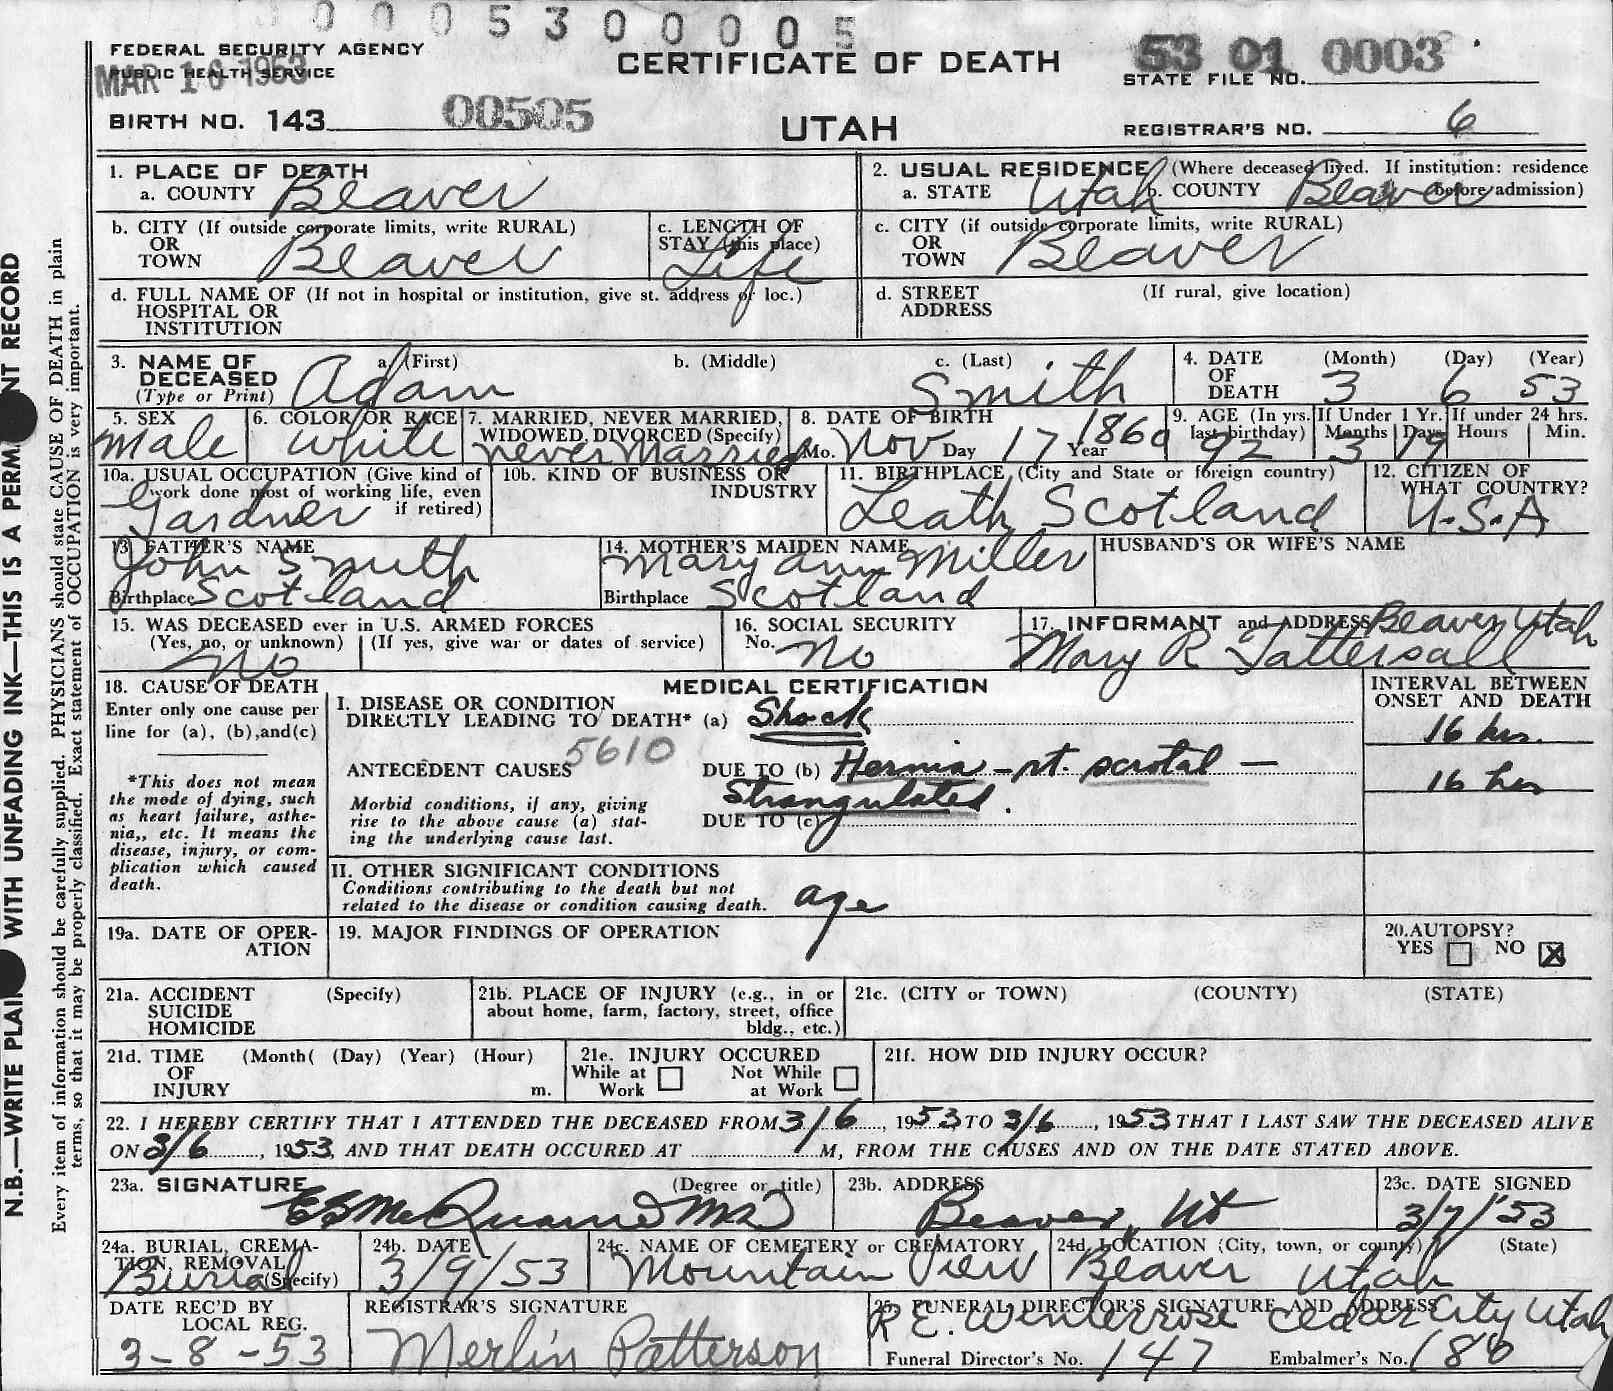 0 0 0 5 3 0 0 0 0 5
FEDERAL SECURITY AGENCY
PUBLIC HEALTH SERVICE
MAR 16 1953
CERTIFICATE OF DEATH
53 01 0003
STATE FILE NO.
BIRTH NO. 143 00505
UTAH
REGISTRAR'S NO. 6
1. PLACE OF DEATH
a. COUNTY Beaver
2. USUAL RESIDENCE (Where deceased lived. If institution: residence before admission)
a. STATE Utah b. COUNTY Beaver
b. CITY (If outside corporate limits, write RURAL)
OR
TOWN Beaver
c. LENGTH OF
STAY (this place)
Life
c. CITY (if outside corporate limits, write RURAL)
OR
TOWN Beaver
d. FULL NAME OF (If not in hospital or institution, give st. address or loc.)
HOSPITAL OR
INSTITUTION
d. STREET (If rural, give location)
ADDRESS
3. NAME OF a. (First) b. (Middle) c. (Last)
DECEASED Adam Smith
(Type or Print)
4. DATE (Month) (Day) (Year)
OF
DEATH 3 6 53
5. SEX
male
6. COLOR OR RACE
white
7. MARRIED, NEVER MARRIED,
WIDOWED, DIVORCED (Specify)
never Married
8. DATE OF BIRTH
Mo. Nov Day 17 Year 1860
9. AGE (In yrs. last birthday) 92
If Under 1 Yr. Months 3 Days 19
If under 24 hrs. Hours Min.
10a. USUAL OCCUPATION (Give kind of
work done most of working life, even
if retired)
Gardner
10b. KIND OF BUSINESS OR
INDUSTRY
11. BIRTHPLACE (City and State or foreign country)
Leath Scotland
12. CITIZEN OF
WHAT COUNTRY?
U.S.A
13. FATHER'S NAME
John Smith
Birthplace Scotland
14. MOTHER'S MAIDEN NAME
Mary Ann Miller
Birthplace Scotland
HUSBAND'S OR WIFE'S NAME
15. WAS DECEASED ever in U.S. ARMED FORCES
(Yes, no, or unknown) (If yes, give war or dates of service)
No
16. SOCIAL SECURITY
No. no
17. INFORMANT and ADDRESS Beaver Utah
Mary R Tattersall
18. CAUSE OF DEATH
Enter only one cause per
line for (a), (b), and (c)
*This does not mean
the mode of dying, such
as heart failure, asthe-
nia,, etc. It means the
disease, injury, or com-
plication which caused
death.
MEDICAL CERTIFICATION
I. DISEASE OR CONDITION
DIRECTLY LEADING TO DEATH* (a) Shock
5610
ANTECEDENT CAUSES DUE TO (b) Hernia - rt. scrotal -
Strangulated.
Morbid conditions, if any, giving
rise to the above cause (a) stat-
ing the underlying cause last.
DUE TO (c)
INTERVAL BETWEEN
ONSET AND DEATH
16 hrs.
16 hrs
II. OTHER SIGNIFICANT CONDITIONS
Conditions contributing to the death but not
related to the disease or condition causing death.
age
19a. DATE OF OPER-
ATION
19. MAJOR FINDINGS OF OPERATION
20. AUTOPSY?
YES NO X
21a. ACCIDENT (Specify)
SUICIDE
HOMICIDE
21b. PLACE OF INJURY (e.g., in or
about home, farm, factory, street, office
bldg., etc.)
21c. (CITY or TOWN) (COUNTY) (STATE)
21d. TIME (Month( (Day) (Year) (Hour)
OF
INJURY m.
21e. INJURY OCCURED
While at Work Not While at Work
21f. HOW DID INJURY OCCUR?
22. I HEREBY CERTIFY THAT I ATTENDED THE DECEASED FROM 3/6, 1953 TO 3/6, 1953 THAT I LAST SAW THE DECEASED ALIVE
ON 3/6, 1953, AND THAT DEATH OCCURED AT M, FROM THE CAUSES AND ON THE DATE STATED ABOVE.
23a. SIGNATURE (Degree or title)
23b. ADDRESS
Beaver, Ut
23c. DATE SIGNED
3/7/'53
24a. BURIAL, CREMA-
TION, REMOVAL
(Specify)
Burial
24b. DATE
3/9/53
24c. NAME OF CEMETERY or CREMATORY
Mountain View
24d. LOCATION (City, town, or county) (State)
Beaver Utah
DATE REC'D BY
LOCAL REG.
3-8-53
REGISTRAR'S SIGNATURE
Merlin Patterson
25. FUNERAL DIRECTOR'S SIGNATURE AND ADDRESS
R E. Winterrose Cedar City Utah
Funeral Director's No. 147 Embalmer's No. 186
N.B.—WRITE PLAI WITH UNFADING INK—THIS IS A PERM NT RECORD
Every item of information should be carefully supplied. PHYSICIANS should state CAUSE OF DEATH in plain
terms, so that it may be properly classified. Exact statement of OCCUPATION is very important.